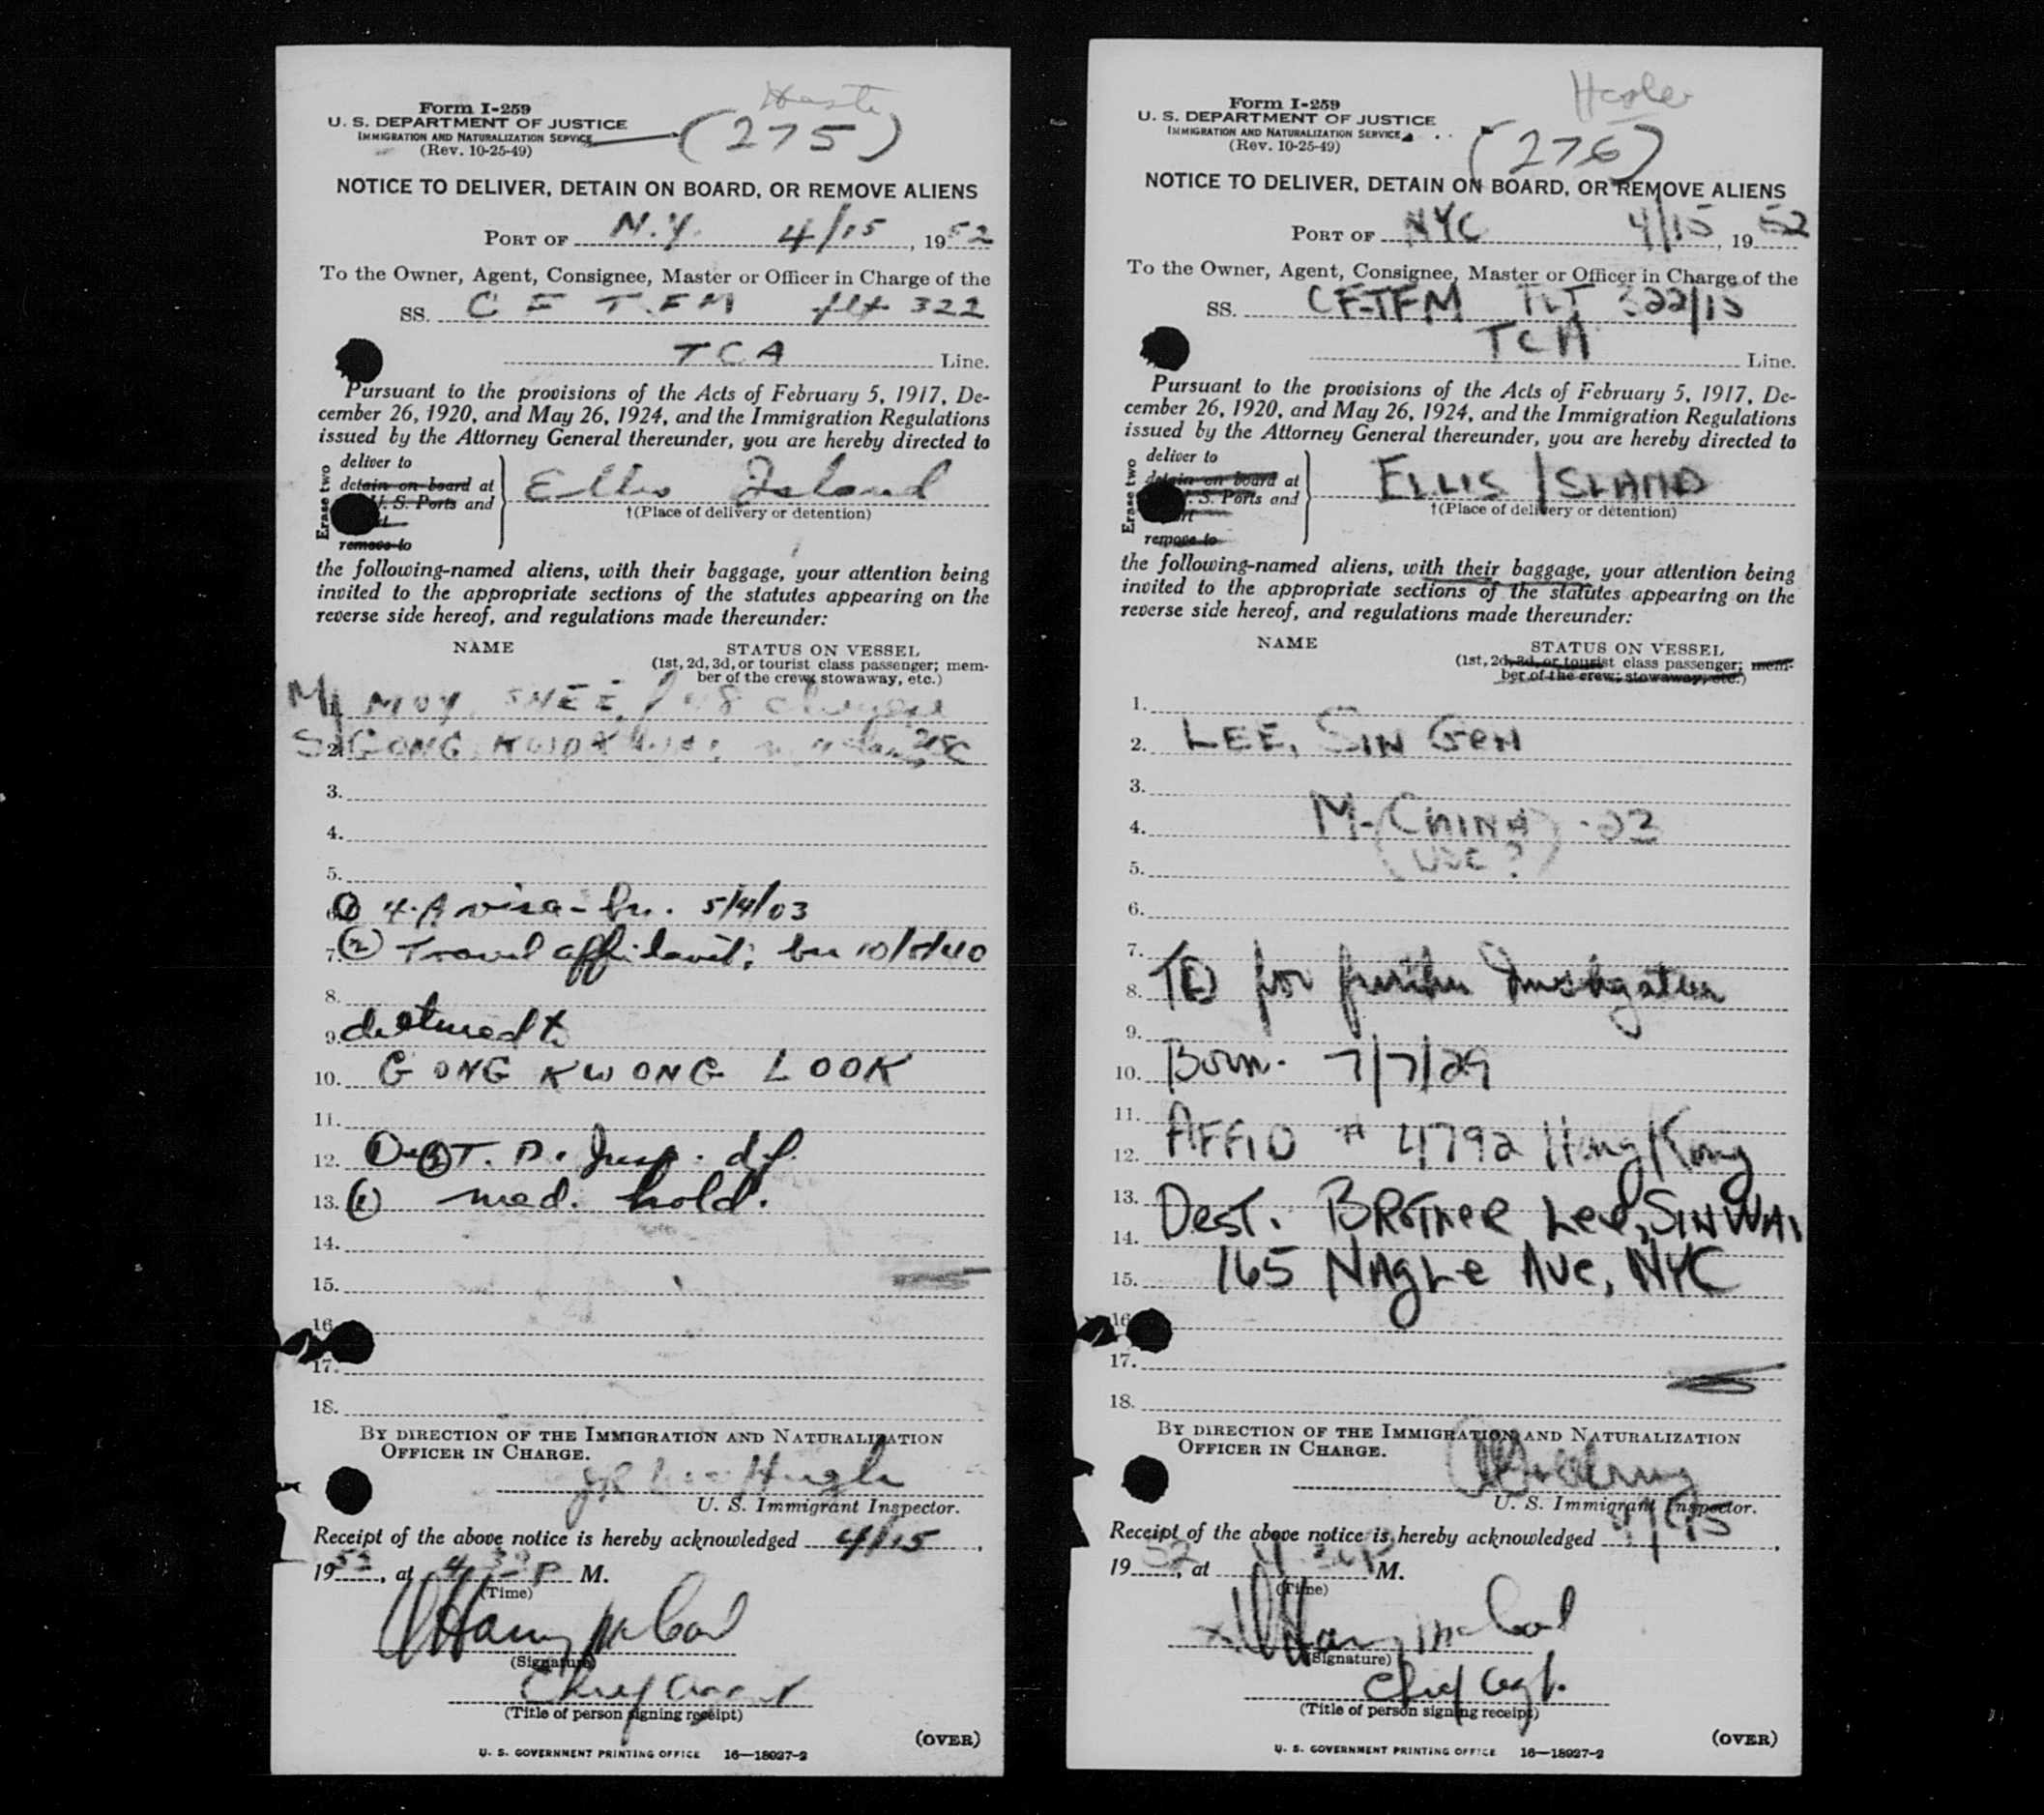 Form I-259
U. S. DEPARTMENT OF JUSTICE
IMMIGRATION AND NATURALIZATION SERVICE
(Rev. 10-25-49)
(275)
NOTICE TO DELIVER, DETAIN ON BOARD, OR REMOVE ALIENS
PORT OF N.Y. 4/15, 1952
To the Owner, Agent, Consignee, Master or Officer in Charge of the
SS. flt 322
TCA Line.
Pursuant to the provisions of the Acts of February 5, 1917, De-
cember 26, 1920, and May 26, 1924, and the Immigration Regulations
issued by the Attorney General thereunder, you are hereby directed to
Erase two
deliver to
detain on board at
U. S. Ports and
remove to
Ellis Island
†(Place of delivery or detention)
the following-named aliens, with their baggage, your attention being
invited to the appropriate sections of the statutes appearing on the
reverse side hereof, and regulations made thereunder:
NAME STATUS ON VESSEL
(1st, 2d, 3d, or tourist class passenger; mem-
ber of the crew; stowaway, etc.)
MOY, SHEE,
2. GONG, KWOK
3.
4.
5.
(1) visa - bn. 5/4/03
7. (2) Travel affidavit; bn
8.
9. destined to
10. GONG KWONG LOOK
11.
12.
13. (1) med. hold.
14.
15.
16.
17.
18.
BY DIRECTION OF THE IMMIGRATION AND NATURALIZATION
OFFICER IN CHARGE.
U. S. Immigrant Inspector.
Receipt of the above notice is hereby acknowledged 4/15,
1952, at P M.
(Time)
Harry
(Signature)
Chief
(Title of person signing receipt)
(OVER)
U. S. GOVERNMENT PRINTING OFFICE 16—18027-2
Form I-259
U. S. DEPARTMENT OF JUSTICE
IMMIGRATION AND NATURALIZATION SERVICE
(Rev. 10-25-49)
(276)
NOTICE TO DELIVER, DETAIN ON BOARD, OR REMOVE ALIENS
PORT OF NYC 4/15, 1952
To the Owner, Agent, Consignee, Master or Officer in Charge of the
SS. CF-TFM FLT 322/15
TCA Line.
Pursuant to the provisions of the Acts of February 5, 1917, De-
cember 26, 1920, and May 26, 1924, and the Immigration Regulations
issued by the Attorney General thereunder, you are hereby directed to
Erase two
deliver to
detain on board at
U. S. Ports and
remove to
ELLIS ISLAND
†(Place of delivery or detention)
the following-named aliens, with their baggage, your attention being
invited to the appropriate sections of the statutes appearing on the
reverse side hereof, and regulations made thereunder:
NAME STATUS ON VESSEL
(1st, 2d, 3d, or tourist class passenger; mem-
ber of the crew; stowaway, etc.)
1.
2. LEE, SIN GEN
3.
4. M-(CHINA) -23
5. (USC?)
6.
7.
8. TD for further Investigation
9.
10. Born. 7/7/29
11.
12. AFFID # 4792 Hong Kong
13. Dest. BROTHER Lee, SIN WAI
14.
15. 165 NAGLE AVE, NYC
16
17.
18.
BY DIRECTION OF THE IMMIGRATION AND NATURALIZATION
OFFICER IN CHARGE.
U. S. Immigrant Inspector.
Receipt of the above notice is hereby acknowledged 4/15,
1952, at P M.
(Time)
Harry
(Signature)
Chief Agt.
(Title of person signing receipt)
(OVER)
U. S. GOVERNMENT PRINTING OFFICE 16—18027-2